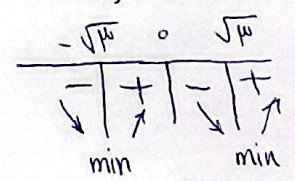 -√μ 0 √μ
- + - +
↘ ↗ ↘ ↗
min min